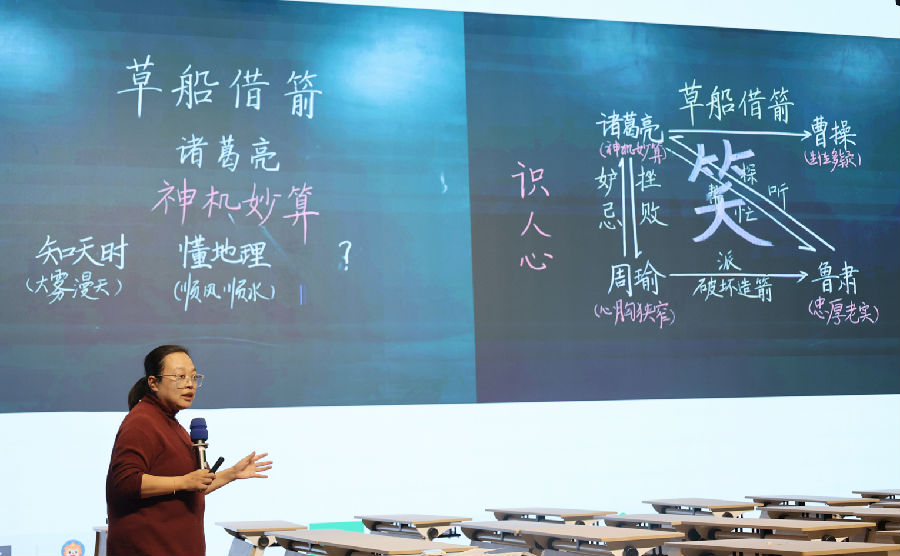 草船借箭
诸葛亮
神机妙算
知天时 懂地理 ？
(大雾漫天) (顺风顺水)
草船借箭
诸葛亮 曹操
(神机妙算) (生性多疑)
识人心
笑
妒忌 挫败
探听
帮忙
周瑜 派 鲁肃
破坏造箭
(心胸狭窄) (忠厚老实)